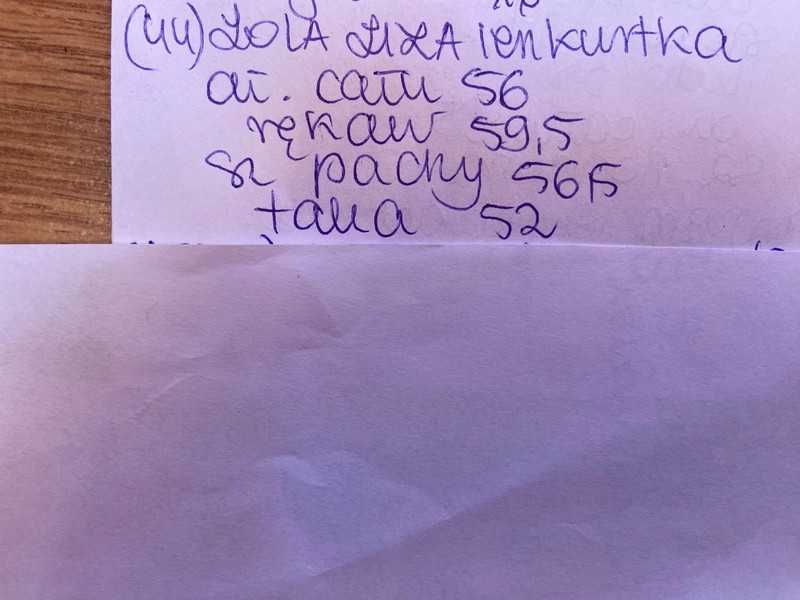 (44) LOLA LIZA jeń kurtka
dł. całk 56
rękaw 59,5
sz pachy 56,5
talia 52